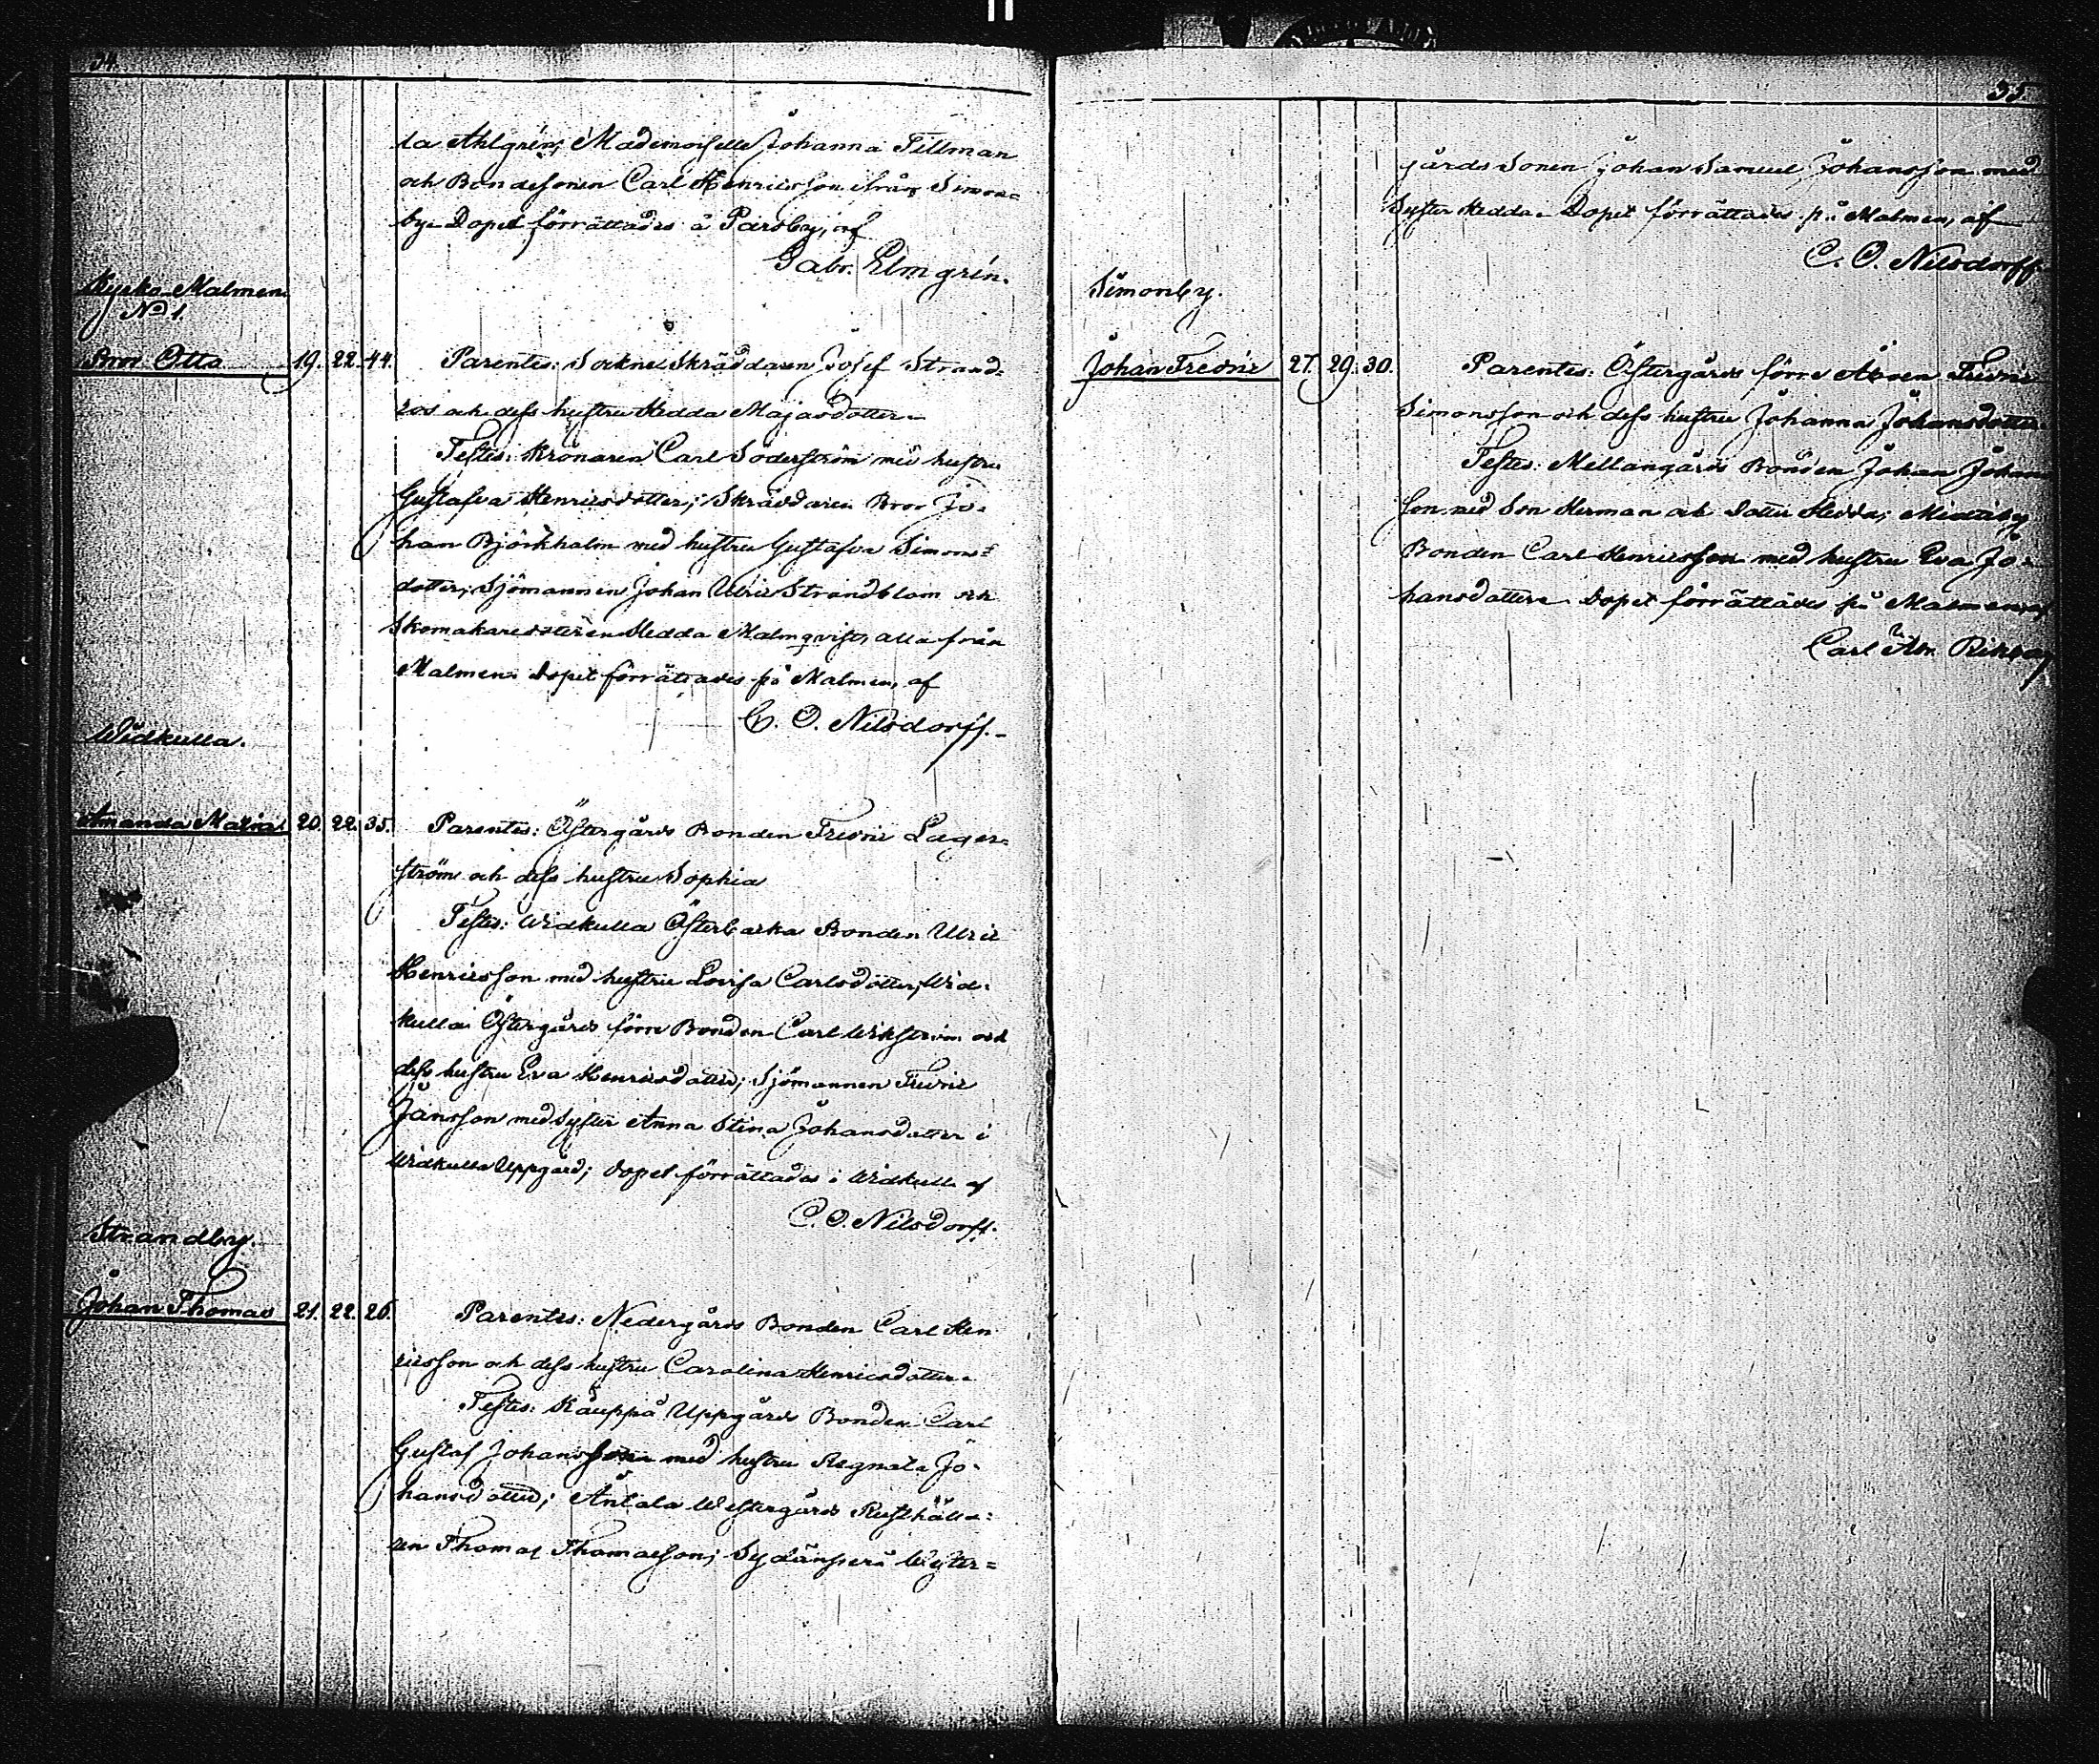 54.
la Ahlgrén; Mademoiselle Johanna Tillman
och Bondesonen Carl Henricsson från Simons=
by. Dopet förrättades å Pärsby, af
Gabr. Elmgrén.
Kyrko Malmen
No 1
Bror Otto 19. 22. 44. Parentes: Sockne Skräddaren Josef Strand=
ros och dess hustru Hedda Majasdotter.
Testes: Kronaren Carl Söderström med hustru
Gustafva Henricsdotter; Skräddaren Bror Jo=
han Björkholm med hustru Gustafva Simons=
dotter; Sjömannen Johan Ulric Strandblom och
Skomakaredottren Hedda Malmqvist, alla från
Malmen. Dopet förrättades på Malmen, af
C. O. Nilsdorff.
Widkulla.
Amanda Maria 20. 22. 35. Parentes: Östergårds Bonden Fredric Lager=
ström och dess hustru Sophia
Testes: Widkulla Österbacka Bonden Ulric
Henricsson med hustru Lovisa Carlsdotter; Wid=
kulla Östergårds förre Bonden Carl Wikström och
dess hustru Eva Henricsdotter; Sjömannen Fredric
Jansson med Syster Anna Stina Johansdotter i
Widkulla Uppgård; dopet förrättades i Widkulla af
C. O. Nilsdorff.
Strandby.
Johan Thomas 21. 22. 26. Parentes: Nedergårds Bonden Carl Hen
ricsson och dess hustru Carolina Henricsdotter.
Testes: Kauppa Uppgårds Bonden Carl
Gustaf Johansson med hustru Regnala Jo=
hansdotter; Antala Westergårds Rusthålla=
ren Thomas Thomasson; Sydänperä Wester=
55.
gårds Sonen Johan Samuel Johansson med
Syster Hedda. Dopet förrättades på Malmen, af
C. O. Nilsdorff.
Simonby.
Johan Fredric 27. 29. 30. Parentes: Östergårds förre Åboen Fredric
Simonsson och dess hustru Johanna Johansdotter
Testes: Mellangårds Bonden Johan Johans
son med Son Herman och dotter Hedda;
Bonden Carl Henricsson med hustru Eva Jo=
hansdotter. Dopet förrättades på Malmen, af
Carl Abr.